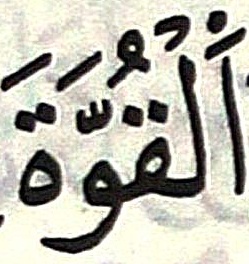 اَلْقُوَّةَ